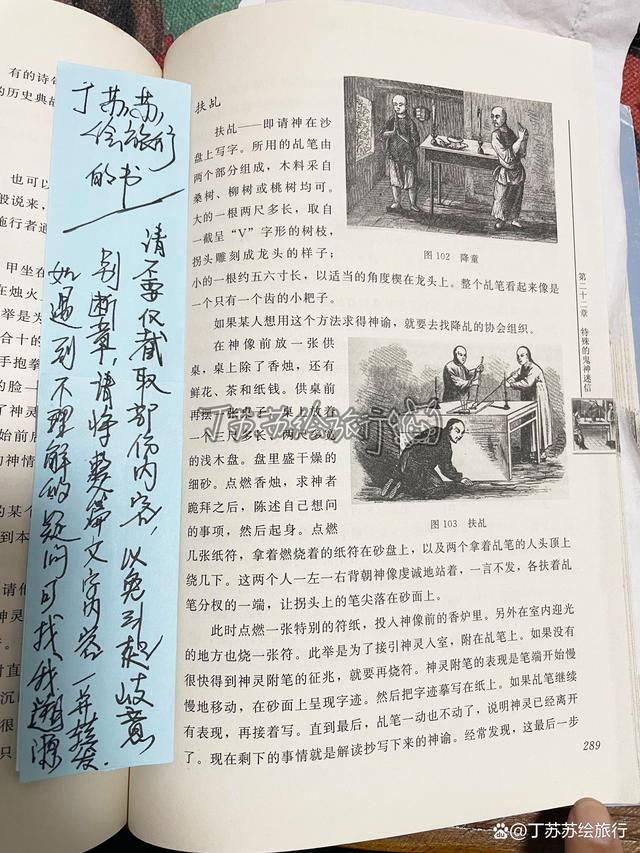 有的诗
的历史典故
也可以
般说来，
施行者通
甲坐在
在烛火
举是为
合十的
手抱拳
的脸一
了神灵
始前后
的神情
的某个
到本
请他
时直
沉
只
丁苏苏
绘旅行
的书
请不要仅截取部份内容，以免引起歧意
别断章，请将整篇文字内容一并转发
如遇到不理解的疑问可找我溯源
扶乩
扶乩——即请神在沙
盘上写字。所用的乩笔由
两个部分组成，木料采自
桑树、柳树或桃树均可。
大的一根两尺多长，取自
一截呈“V”字形的树枝，
拐头雕刻成龙头的样子；
图 102 降童
小的一根约五六寸长，以适当的角度楔在龙头上。整个乩笔看起来像是
一个只有一个齿的小耙子。
如果某人想用这个方法求得神谕，就要去找降乩的协会组织。
在神像前放一张供
桌，桌上除了香烛，还有
鲜花、茶和纸钱。供桌前
再摆一张桌子，桌上放着
一个三尺多长、两尺多宽
的浅木盘。盘里盛干燥的
细砂。点燃香烛，求神者
跪拜之后，陈述自己想问
的事项，然后起身。点燃
图 103 扶乩
几张纸符，拿着燃烧着的纸符在砂盘上，以及两个拿着乩笔的人头顶上
绕几下。这两个人一左一右背朝神像虔诚地站着，一言不发，各扶着乩
笔分杈的一端，让拐头上的笔尖落在砂面上。
此时点燃一张特别的符纸，投入神像前的香炉里。另外在室内迎光
的地方也烧一张符。此举是为了接引神灵入室，附在乩笔上。如果没有
很快得到神灵附笔的征兆，就要再烧符。神灵附笔的表现是笔端开始慢
慢地移动，在砂面上呈现字迹。然后把字迹摹写在纸上。如果乩笔继续
有表现，再接着写。直到最后，乩笔一动也不动了，说明神灵已经离开
了。现在剩下的事情就是解读抄写下来的神谕。经常发现，这最后一步
289
第二十二章 特殊的鬼神迷信
丁苏苏绘旅行
@丁苏苏绘旅行